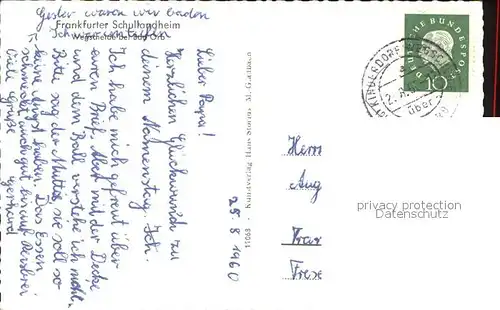 Gestern waren wir baden
Schwimmbaden
Frankfurter Schullandheim
Wegscheide bei Bad Orb
Lieber Papa!
Herzlichen Glückwunsch zu
deinem Namenstag. Ich
Ich habe mich gefreut über
euren Brief. Aber mit der Decke
und dem Ball verstehe ich nicht.
Bitte sag der Mutti, sie soll so
keine Angst haben. Das Essen
schmeckt auch gut
Viele Grüße Gerhard
25. 8. 1960
17068 - Kunstverlag Hans
Herrn
Aug
Frax
Frese
DEUTSCHE BUNDESPOST
10
KINDERDORF WEGSCHEIDE
über
privacy protection
Datenschutz